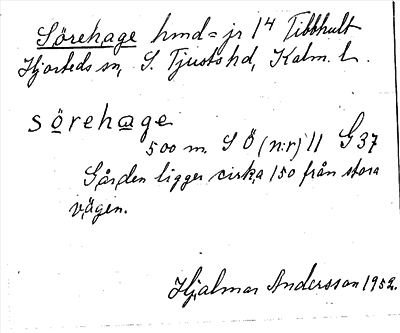 Sörehage hmd = jr 1⁴ Tibbhult
Hjorteds sn, S. Tjusts hd, Kalm. l.
sörehage
500 m. S Ö (n:r) 11 G 37
Gården ligger cirka 150 från stora
vägen.
Hjalmar Andersson 1952.